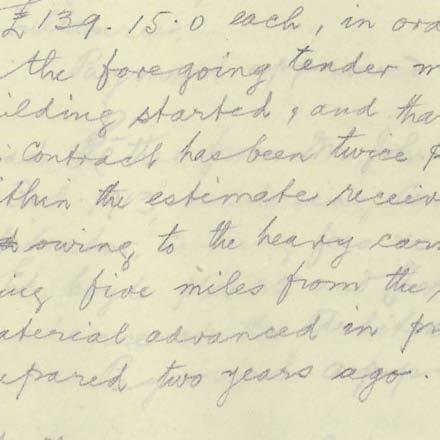 £139.15.0 each, in ord
the foregoing tender m
ilding started, and tha
contract has been twice p
ithin the estimate receiv
owing to the heavy carr
ing five miles from the
aterial advanced in pr
epared two years ago.